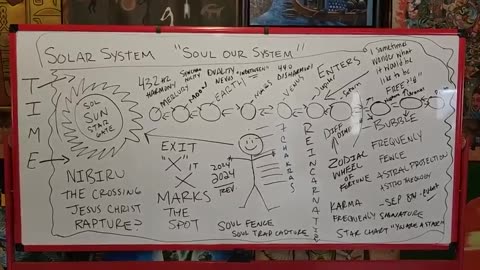 SOLAR SYSTEM "SOUL OUR SYSTEM"
I SOMETIMES
WONDER WHAT
IT WOULD BE
LIKE TO BE
FREE
TIME
SOL
SUN
STAR
GATE
432 HZ
HARMONY
MERCURY
MOON
DUALITY
VENUS
EARTH
MARS
440
DISHARMONY
VENUS
JUPITER
ENTERS
SATURN
BUBBLE
DIFF
DIM
EXIT
"X"
IT
MARKS
THE
SPOT
2014
2024
REV
7 CHAKRAS
REINCARNATE
NIBIRU
THE CROSSING
"JESUS CHRIST
RAPTURE?
SOUL FENCE
SOUL TRAP CAPTURE
ZODIAC
WHEEL
OF
FORTUNE
KARMA
FREQUENCY SIGNATURE
FREQUENCY
FENCE
ASTRAL PROJECTION
ASTRO THEOLOGY
STAR CHART "YOU ARE A STAR"